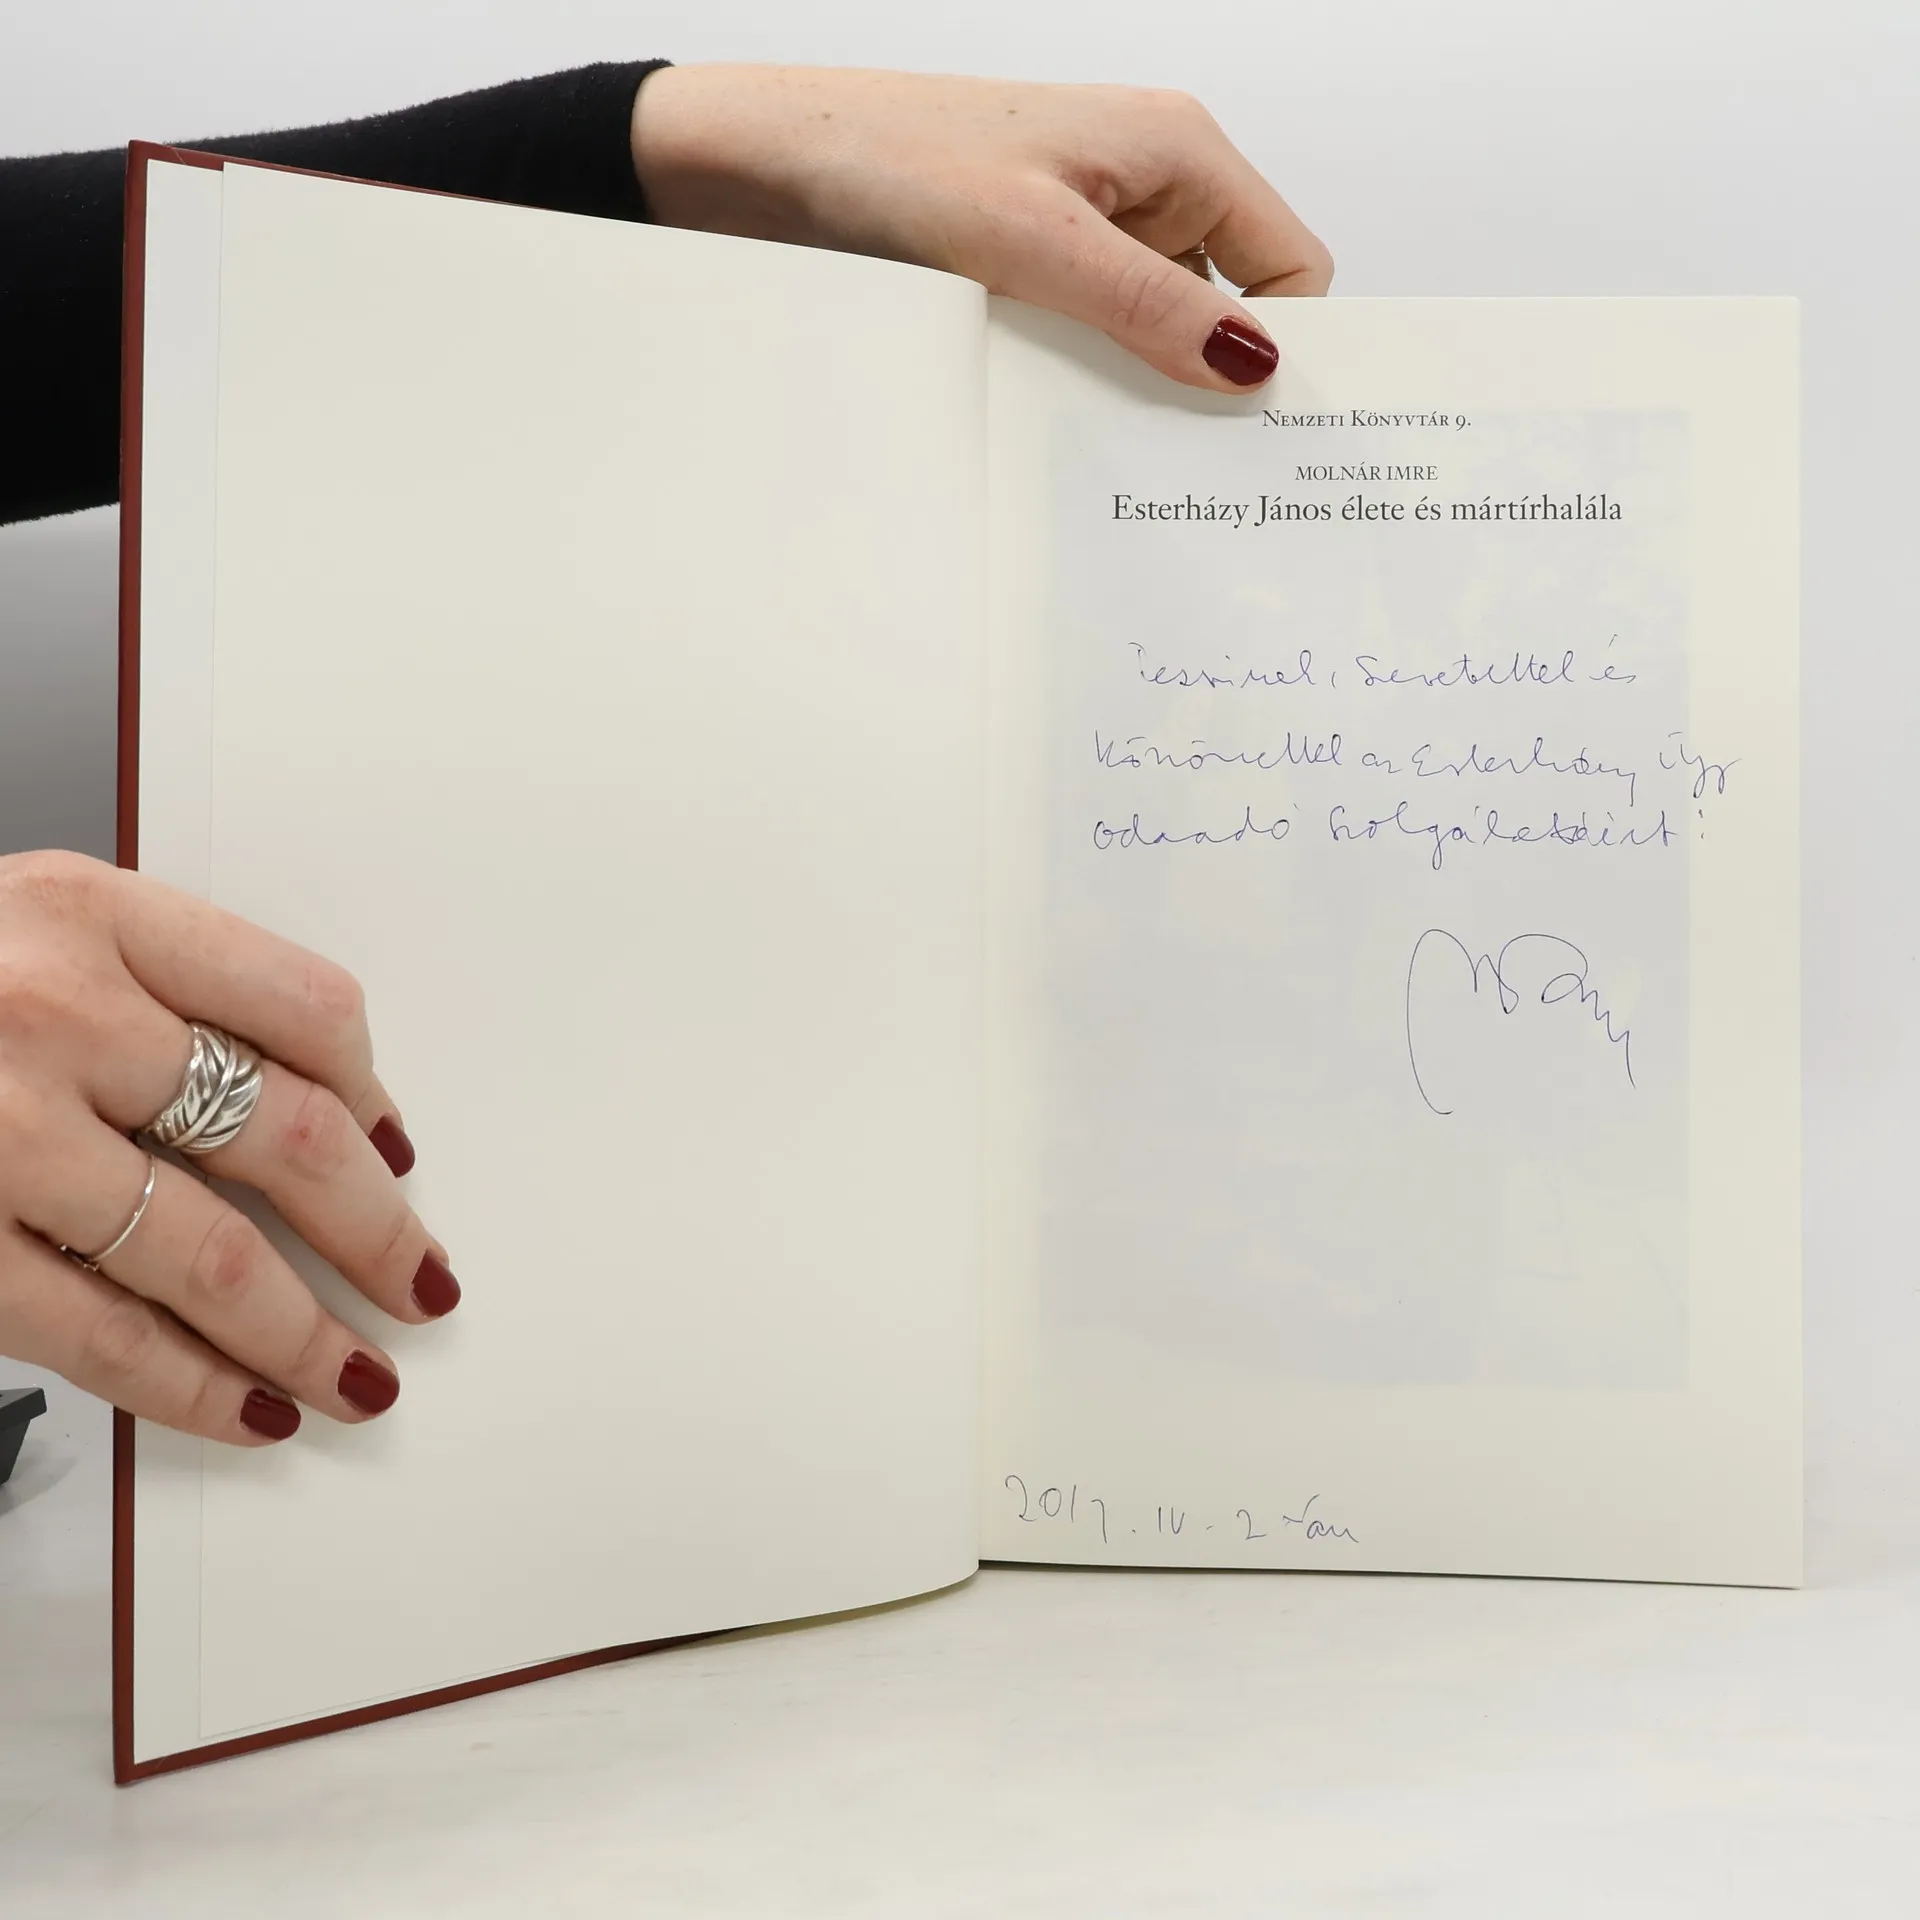 NEMZETI KÖNYVTÁR 9.
MOLNÁR IMRE
Esterházy János élete és mártírhalála
szeretettel és
köszönettel az Esterházy ügy
odaadó szolgálatáért!
2017. IV. 2-án